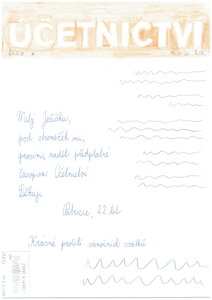 ÚČETNICTVÍ
Milý Ježíšku,
pod stromeček mi,
prosím, naděl předplatné
časopisu Účetnictví.
Děkuji
22 let
Krásné prožití vánočních svátků